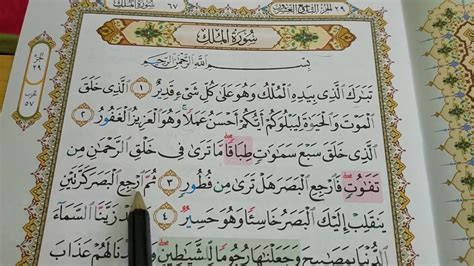 ٢٩ الجزء التاسع والعشرون
٦٧ سورة الملك
سُورَةُ الْمُلْكِ
بِسْمِ ٱللَّهِ ٱلرَّحْمَٰنِ ٱلرَّحِيمِ
تَبَٰرَكَ ٱلَّذِى بِيَدِهِ ٱلْمُلْكُ وَهُوَ عَلَىٰ كُلِّ شَىْءٍ قَدِيرٌ ١ ٱلَّذِى خَلَقَ
ٱلْمَوْتَ وَٱلْحَيَوٰةَ لِيَبْلُوَكُمْ أَيُّكُمْ أَحْسَنُ عَمَلًا ۚ وَهُوَ ٱلْعَزِيزُ ٱلْغَفُورُ ٢
ٱلَّذِى خَلَقَ سَبْعَ سَمَٰوَٰتٍ طِبَاقًا ۖ مَّا تَرَىٰ فِى خَلْقِ ٱلرَّحْمَٰنِ مِن
تَفَٰوُتٍ ۖ فَٱرْجِعِ ٱلْبَصَرَ هَلْ تَرَىٰ مِن فُطُورٍ ٣ ثُمَّ ٱرْجِعِ ٱلْبَصَرَ كَرَّتَيْنِ
يَنقَلِبْ إِلَيْكَ ٱلْبَصَرُ خَاسِئًا وَهُوَ حَسِيرٌ ٤ زَيَّنَّا ٱلسَّمَآءَ
ٱلدُّنْيَا بِمَصَٰبِيحَ وَجَعَلْنَٰهَا رُجُومًا لِّلشَّيَٰطِينِ ۖ لَهُمْ عَذَابَ
جزء
٢٩
حزب
٥٧